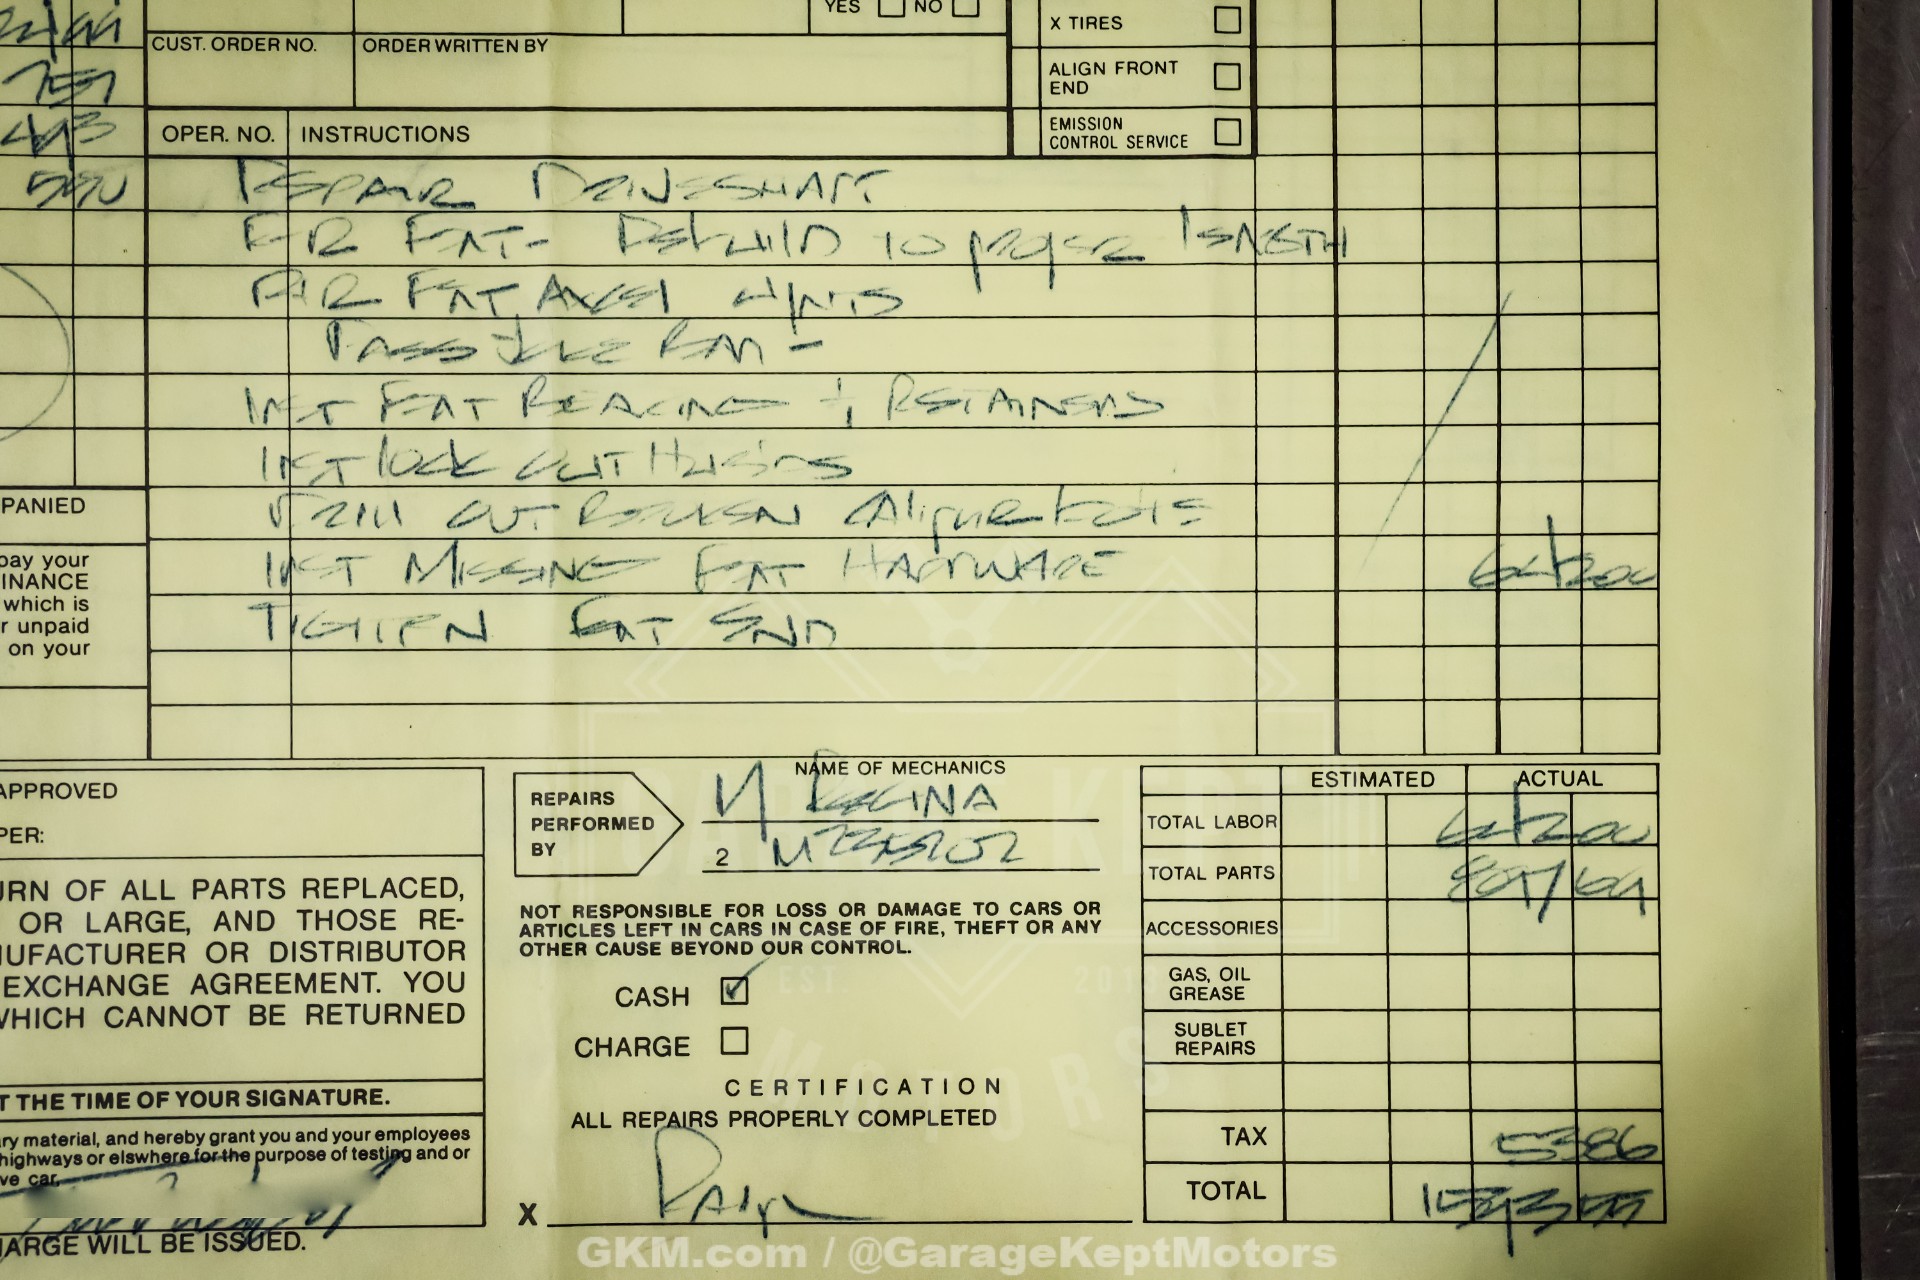 YES NO
X TIRES
CUST. ORDER NO. ORDER WRITTEN BY
ALIGN FRONT
END
EMISSION
CONTROL SERVICE
OPER. NO. INSTRUCTIONS
REPAIR DRIVESHAFT
FOR FRT - REBUILD TO PROPER LENGTH
FOR FRT AXEL JOINTS
PASS
INST FRT BEARING + RETAINERS
INST LOCK OUT HUBS
DRILL OUT BROKEN
INST MISSING FRT HARDWARE
TIGHTEN FRT END
PANIED
pay your
INANCE
which is
r unpaid
on your
APPROVED
PER:
URN OF ALL PARTS REPLACED,
OR LARGE, AND THOSE RE-
NUFACTURER OR DISTRIBUTOR
EXCHANGE AGREEMENT. YOU
WHICH CANNOT BE RETURNED
T THE TIME OF YOUR SIGNATURE.
ry material, and hereby grant you and your employees
highways or elswhere for the purpose of testing and or
ve car,
HARGE WILL BE ISSUED.
REPAIRS
PERFORMED
BY
NAME OF MECHANICS
2
NOT RESPONSIBLE FOR LOSS OR DAMAGE TO CARS OR
ARTICLES LEFT IN CARS IN CASE OF FIRE, THEFT OR ANY
OTHER CAUSE BEYOND OUR CONTROL.
CASH
CHARGE
CERTIFICATION
ALL REPAIRS PROPERLY COMPLETED
X
ESTIMATED ACTUAL
TOTAL LABOR
TOTAL PARTS
ACCESSORIES
GAS, OIL
GREASE
SUBLET
REPAIRS
TAX 5386
TOTAL
GARAGE KEPT
EST. 2013
MOTORS
GKM.com / @GarageKeptMotors